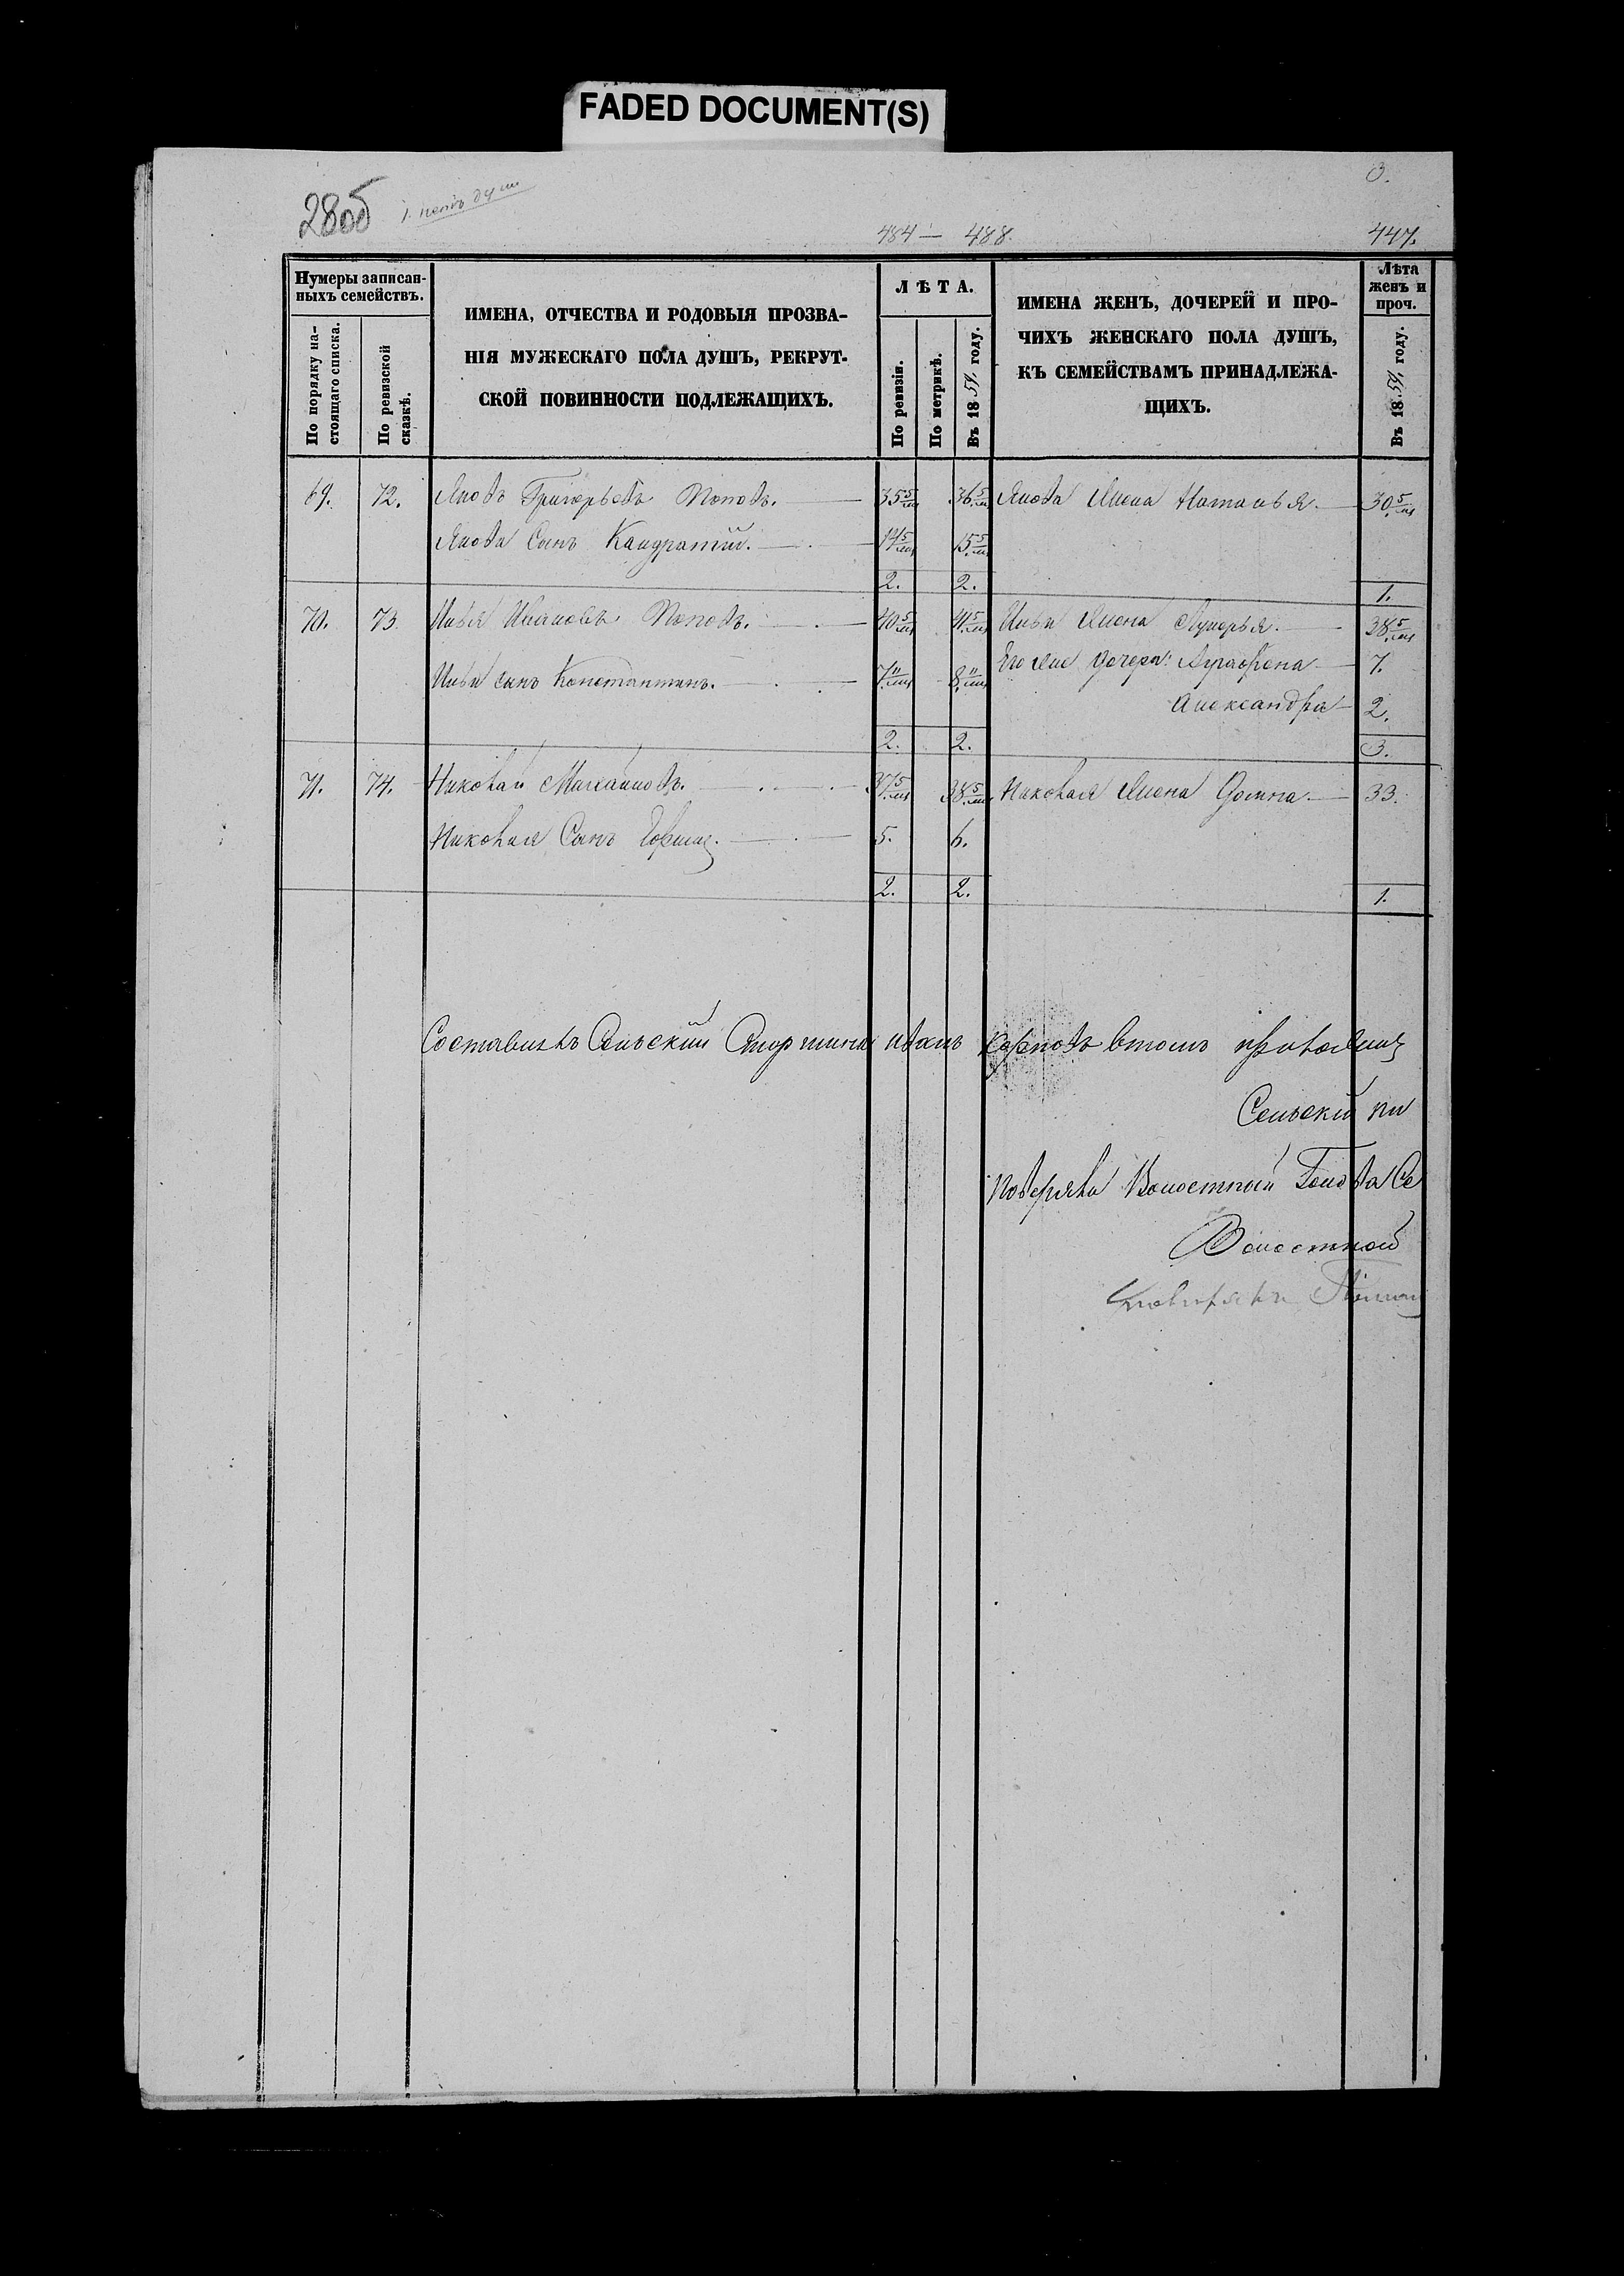 FADED DOCUMENT(S)
3.
280б
484 — 488. 447.
Нумеры записан-
ныхъ семействъ.
По порядку на-
стоящаго списка.
По ревизской
сказкѣ.
ИМЕНА, ОТЧЕСТВА И РОДОВЫЯ ПРОЗВА-
НІЯ МУЖЕСКАГО ПОЛА ДУШЪ, РЕКРУТ-
СКОЙ ПОВИННОСТИ ПОДЛЕЖАЩИХЪ.
ЛѢТА.
По ревизіи.
По метрикѣ.
Въ 1854, году.
ИМЕНА ЖЕНЪ, ДОЧЕРЕЙ И ПРО-
ЧИХЪ ЖЕНСКАГО ПОЛА ДУШЪ,
КЪ СЕМЕЙСТВАМЪ ПРИНАДЛЕЖА-
ЩИХЪ.
Лѣта
женъ и
проч.
Въ 1854, году.
69. 72. Яковъ Григорьевъ Поповъ. 35 5/мц 36 5/мц Якова Жена Наталья 30 5/мц
Якова Сынъ Кандратій. 14 5/мц 15 5/мц
2. 2. 1.
70. 73 Илья Ивановъ Поповъ. 40 5/мц 41 5/мц Ильи Жена Лукерья. 38 5/мц
Его же дочери: Аграфена 7.
Ильи сынъ Константинъ. 7 11/мц 8 11/мц
Александра 2.
2. 2. 3.
71. 74. Николай Михайловъ. 37 5/мц 38 5/мц Николая Жена Домна. 33.
Николая Сынъ 5. 6.
2. 2. 1.
Составилъ Сельскій Старшина Карповъ втомъ приложилъ
Сельскій пи
Поверялъ Волостный Голова Се
Волостной